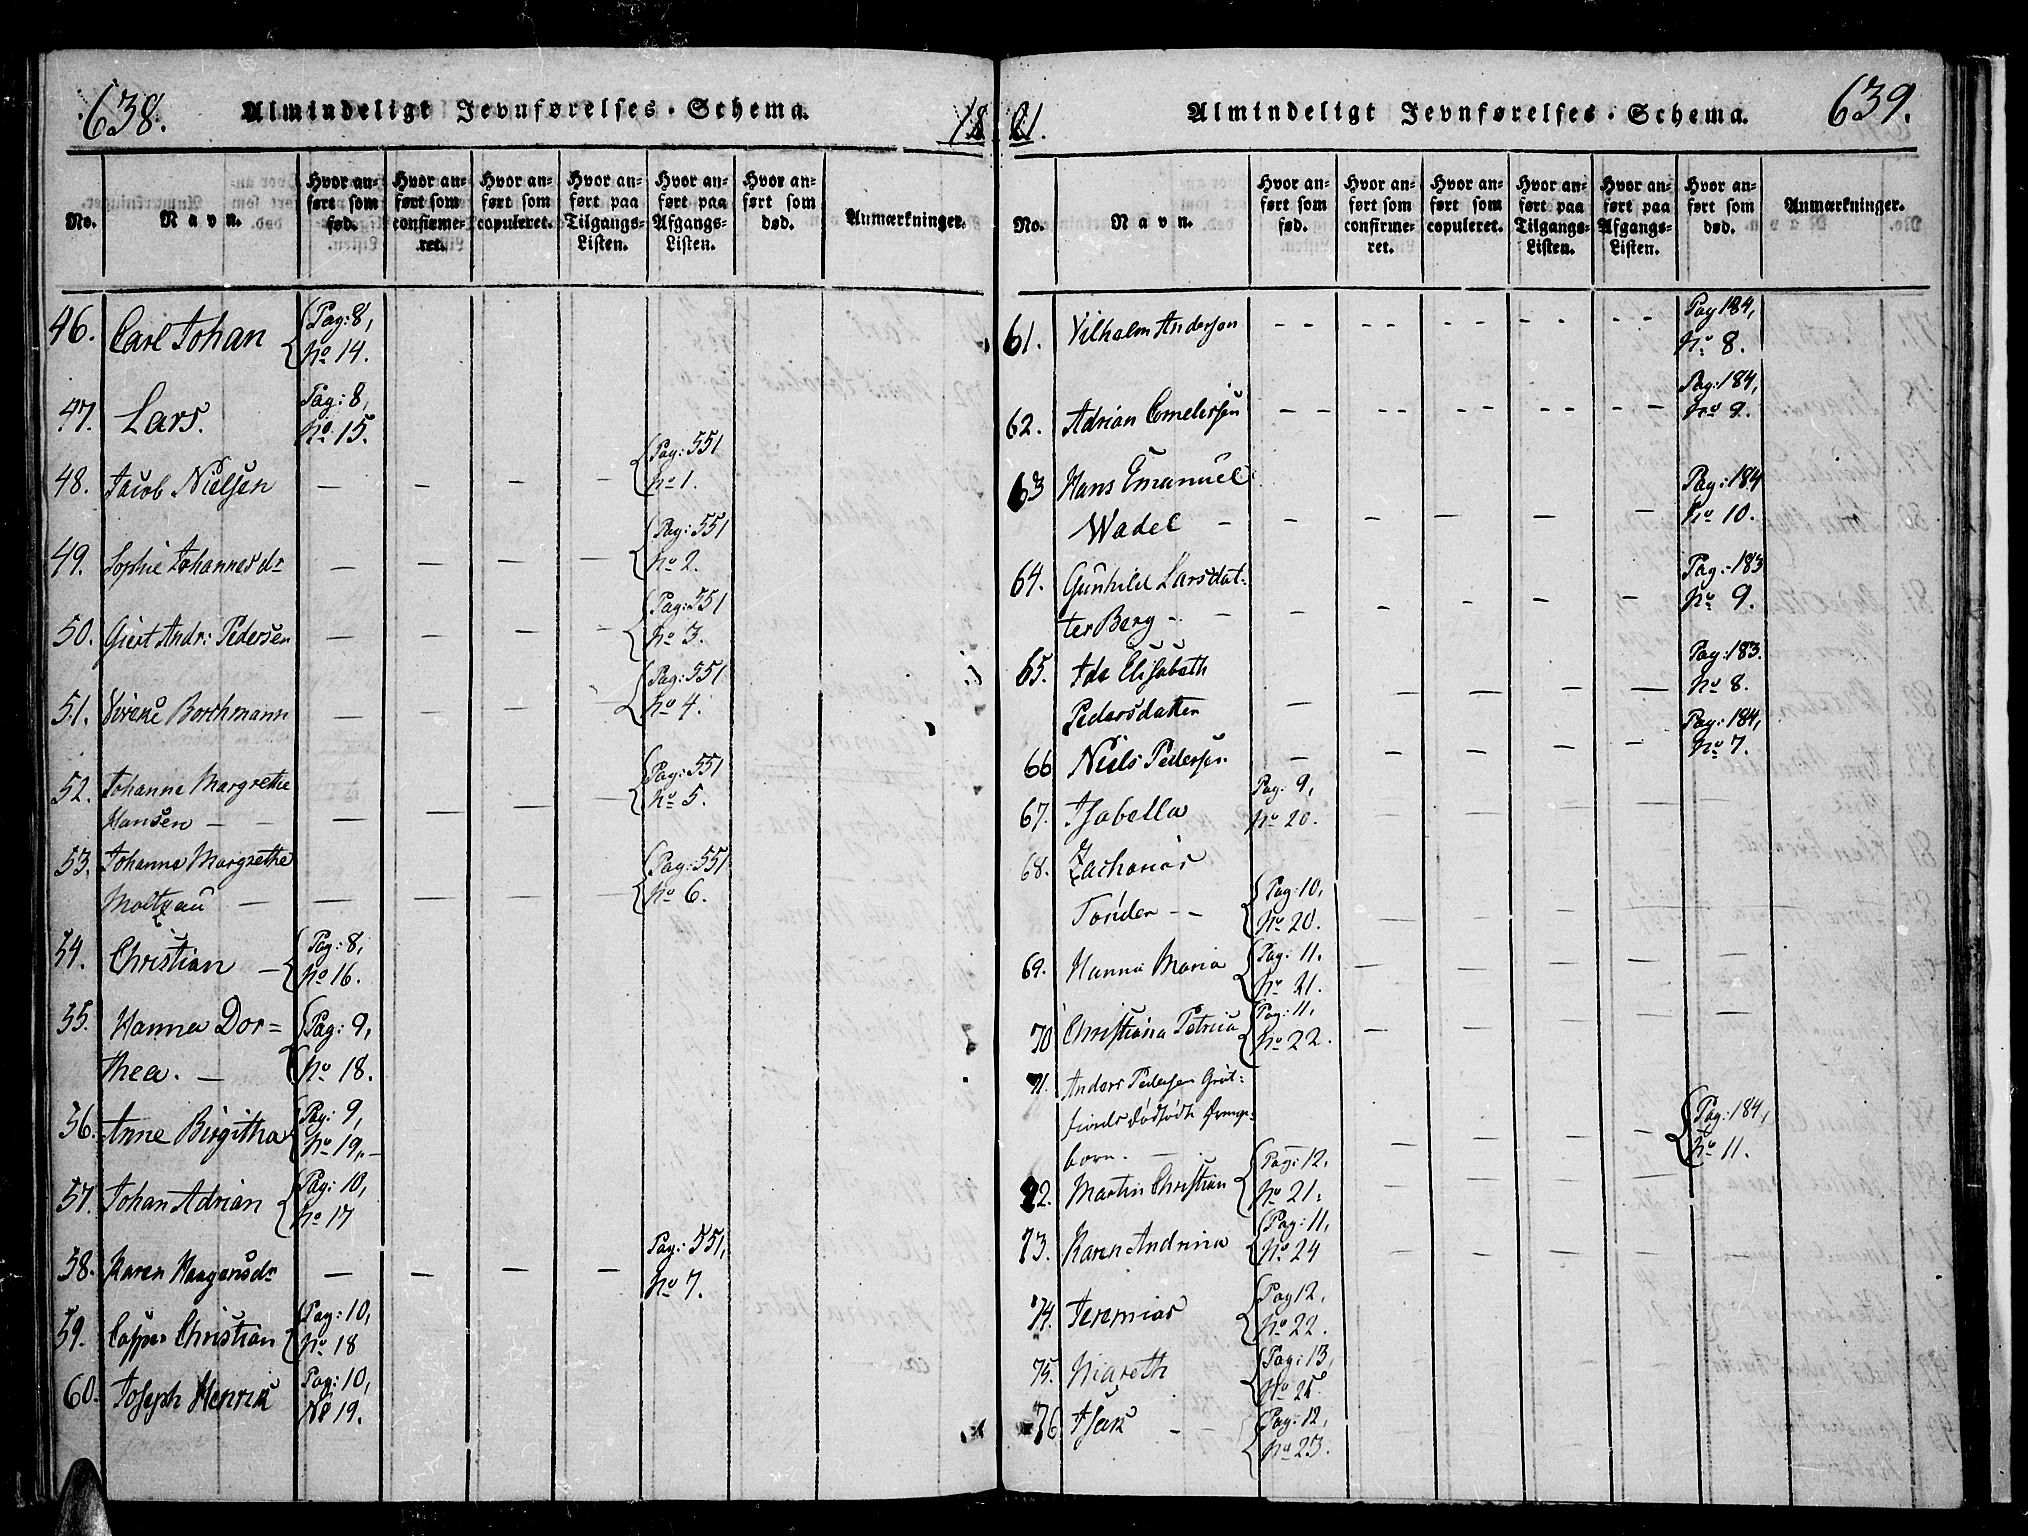 638.
Almindeligt Jevnførelses-Schema.
18
No.
Navn.
Hvor anført som fød.
Hvor anført som confirmeret.
Hvor anført som copuleret.
Hvor anført paa Tilgangs-Listen.
Hvor anført paa Afgangs-Listen.
Hvor anført som død.
Anmærkninger.
46. Carl Johan Pag: 8, No 14.
47. Lars. Pag: 8, No 15.
48. Jacob Nielsen — — — — Pag: 551 No 1.
49. Sophie Johannesdr — — — — Pag: 551 No 2.
50. Giert Andr: Pedersen — — — — Pag: 551 No 3.
51. Vivike Borchmann — — — — Pag: 551 No 4.
52. Johanne Margrethe
Hansen — — — — — Pag: 551 No 5.
53. Johanna Margrethe
Moltzau — — — — — Pag: 551 No 6.
54. Christian — Pag: 8, No 16.
55. Hanna Dor=
thea. — Pag: 9, No 18.
56. Anne Birgitha Pag: 9, No 19,
57. Johan Adrian Pag: 10, No 17
58. Karen Haagensdr — — — — Pag: 551, No 7.
59. Casper Christian Pag: 10, No 18
60. Joseph Henrik Pag: 10, No 19.
21.
Almindeligt Jevnførelses-Schema.
639.
No.
Navn.
Hvor anført som fød.
Hvor anført som confirmeret.
Hvor anført som copuleret.
Hvor anført paa Tilgangs-Listen.
Hvor anført paa Afgangs-Listen.
Hvor anført som død.
Anmærkninger.
61. Vilhelm Andersen - - - - - - - - - - Pag 184, No 8.
62. Adrian Cornelissen - - - - - - - - - - Pag: 184, No 9.
63 Hans Emanuel
Wadel — — — — — — Pag: 184 No 10.
64. Gunhild Larsdat-
ter Berg — — — — — — Pag: 183 No 9.
65. Ide Elisabeth
Pedersdatter — — — — — Pag: 183. No 8.
66 Niels Pedersen — — — — — Pag: 184, No 7.
67. Isabella Pag. 9, No 20.
68. Zacharias
Tönder — Pag: 10, No 20.
69. Hanna Maria Pag: 11. No 21.
70 Christiana Petrica Pag: 11, No 22.
71. Anders Pedersen Gröt-
fiords dödfödte Drenge-
barn. — — — — — — Pag: 184, No 11.
72. Martin Christian Pag: 12, No 21.
73. Karen Andrina Pag: 11, No 24
74. Jeremias Pag 12, No 22.
75. Mareth Pag: 13, No 25.
76. Isak — Pag: 12, No 23.